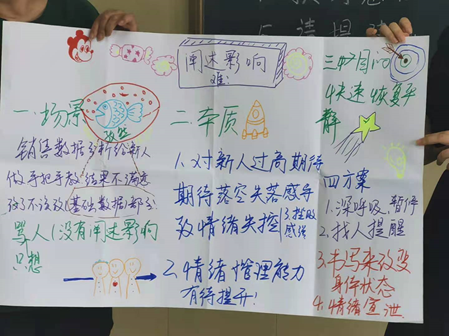 阐述影响
难!
一.场景
销售数据分析给新人
做手把手教结果不满意
改了不该改基础数据部分
骂人!没有阐述影响
只想
二.本质
1.对新人过高期待
期待落空失落感导
致情绪失控
3.挫败
感强
2.情绪管理能力
有待提升!
三.目
快速恢复平
静
四方案
1.深呼吸、暂停
2.找人提醒
3.书写来改变
身体状态
4.情绪宣泄